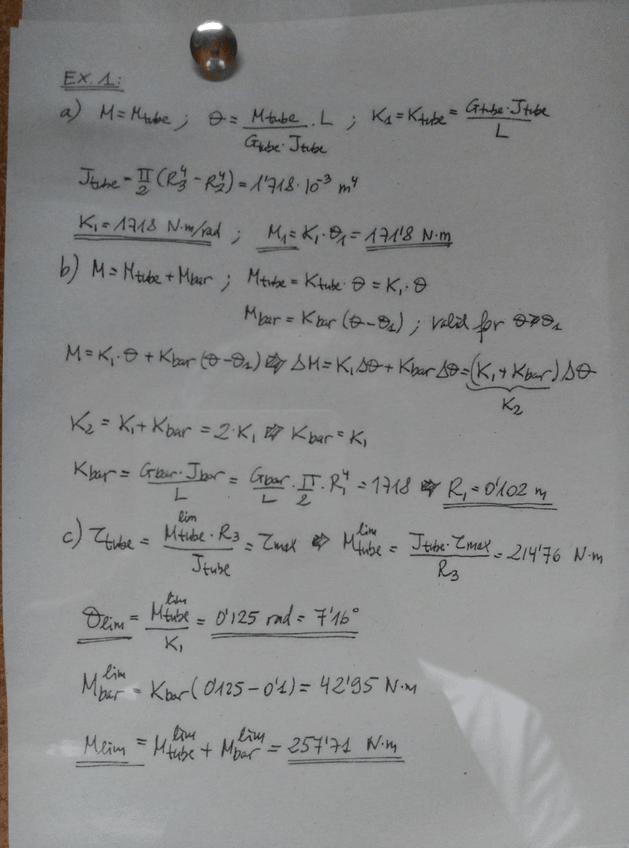 EX. 1:
a) M = Mtube ; θ = Mtube / (Gtube · Jtube) · L ; K1 = Ktube = Gtube · Jtube / L
Jtube = π/2 (R3^4 - R2^4) = 1'718 · 10^-3 m^4
K1 = 1718 N·m/rad ; M1 = K1 · θ1 = 171'8 N·m
b) M = Mtube + Mbar ; Mtube = Ktube · θ = K1 · θ
Mbar = Kbar (θ - θ1) ; valid for θ ≥ θ1
M = K1 · θ + Kbar (θ - θ1) ⇒ ΔM = K1 Δθ + Kbar Δθ = (K1 + Kbar) Δθ
K2
K2 = K1 + Kbar = 2 · K1 ⇒ Kbar = K1
Kbar = Gbar · Jbar / L = Gbar / L · π/2 · R1^4 = 1718 ⇒ R1 = 0'102 m
c) τtube = Mtube^lim · R3 / Jtube = τmax ⇒ Mtube^lim = Jtube · τmax / R3 = 214'76 N·m
θlim = Mtube^lim / K1 = 0'125 rad = 7'16°
Mbar^lim = Kbar (0'125 - 0'1) = 42'95 N·m
Mlim = Mtube^lim + Mbar^lim = 257'71 N·m